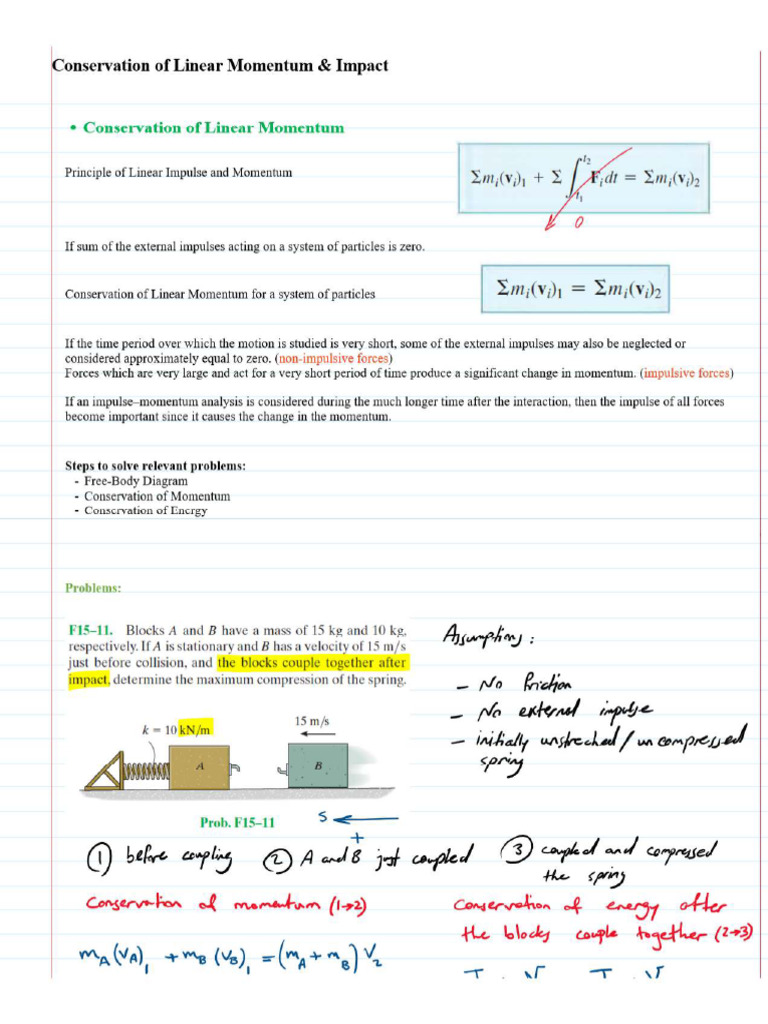 Conservation of Linear Momentum & Impact
• Conservation of Linear Momentum
Principle of Linear Impulse and Momentum
Σmᵢ(vᵢ)₁ + Σ ∫ₜ₁ᵗ² Fᵢdt = Σmᵢ(vᵢ)₂
0
If sum of the external impulses acting on a system of particles is zero.
Conservation of Linear Momentum for a system of particles
Σmᵢ(vᵢ)₁ = Σmᵢ(vᵢ)₂
If the time period over which the motion is studied is very short, some of the external impulses may also be neglected or
considered approximately equal to zero. (non-impulsive forces)
Forces which are very large and act for a very short period of time produce a significant change in momentum. (impulsive forces)
If an impulse–momentum analysis is considered during the much longer time after the interaction, then the impulse of all forces
become important since it causes the change in the momentum.
Steps to solve relevant problems:
- Free-Body Diagram
- Conservation of Momentum
- Conservation of Energy
Problems:
F15–11. Blocks A and B have a mass of 15 kg and 10 kg,
respectively. If A is stationary and B has a velocity of 15 m/s
just before collision, and the blocks couple together after
impact, determine the maximum compression of the spring.
15 m/s
k = 10 kN/m
A
B
Prob. F15–11
S
+
Assumptions:
- No friction
- No external impulse
- initially unstreched/uncompressed
spring
① before coupling
② A and B just coupled
③ coupled and compressed
the spring
Conservation of momentum (1→2)
m_A(V_A)₁ + m_B(V_B)₁ = (m_A + m_B)V₂
Conservation of energy after
the blocks couple together (2→3)